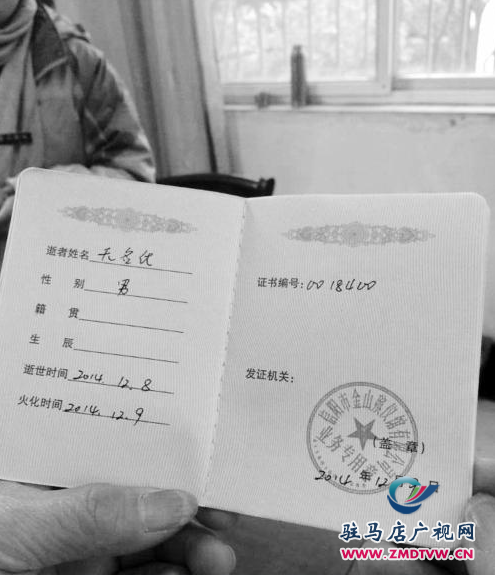 逝者姓名 无名优
性 别 男
籍 贯
生 辰
逝世时间 2014.12.8
火化时间 2014.12.9
证书编号:0018400
发证机关:
信阳市金山殡仪馆有限公司
业务专用章
(盖 章)
2014 年 12 月 9 日
驻马店广视网
WWW.ZMDTVW.CN